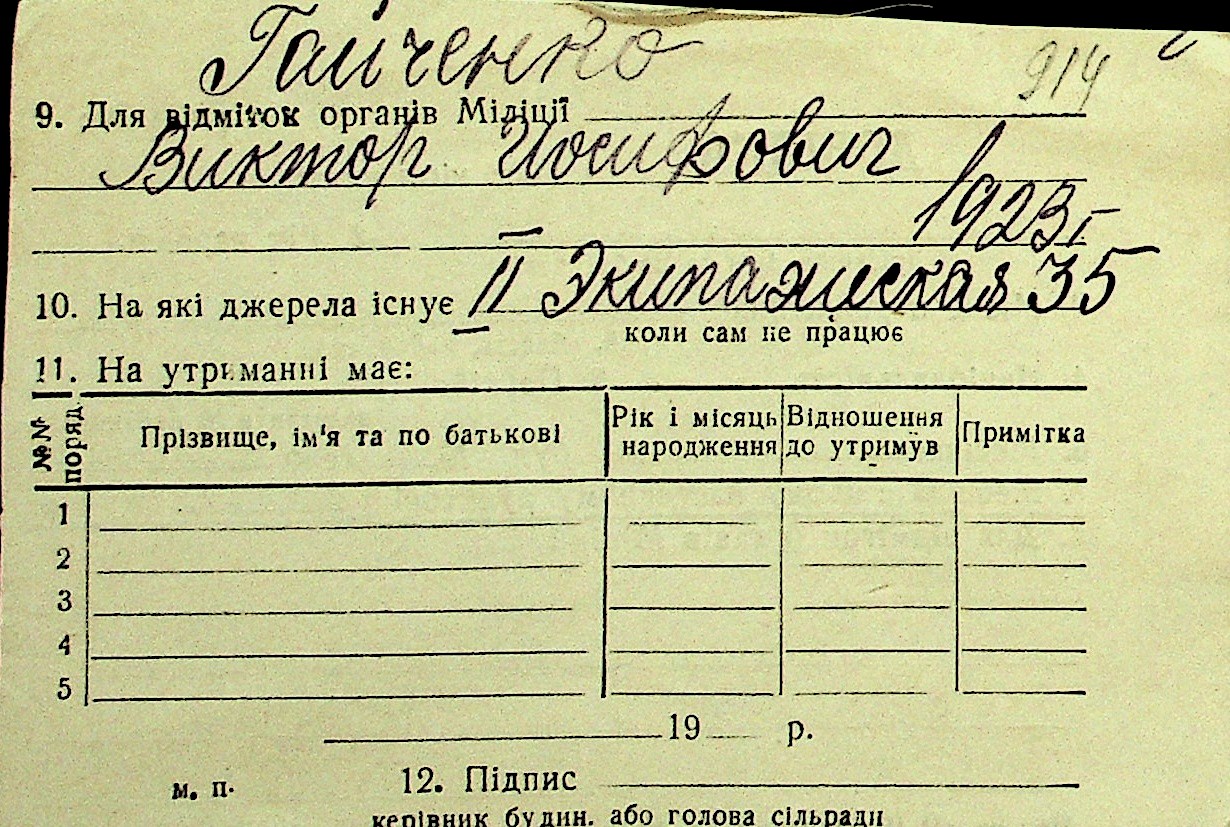 Гайченко
914
9. Для відміток органів Міліції
Виктор Иосифович
1923 г
10. На які джерела існує II Экипажеская 35
коли сам не працює
11. На утриманні має:
№№ поряд. Прізвище, ім'я та по батькові Рік і місяць народження Відношення до утримув Примітка
1
2
3
4
5
19 р.
м. п. 12. Підпис
керівник будин. або голова сільради